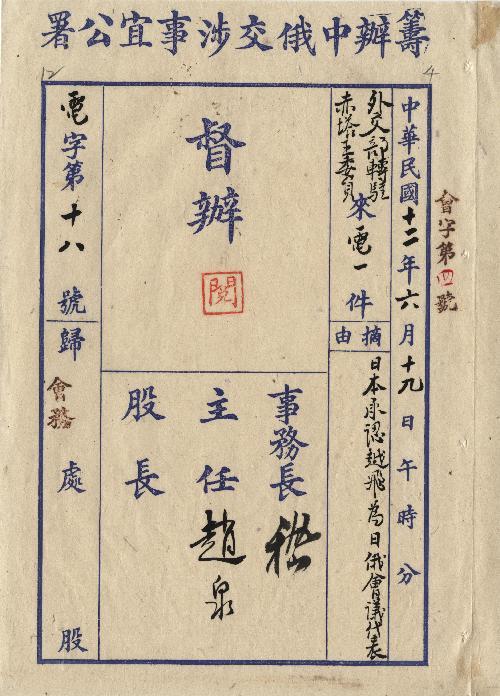 籌辦中俄交涉事宜公署
會字第四號
中華民國十二年六月十九日午時分
外交部轉駐
赤塔王委員
來電一件
摘由
日本承認越飛為日俄會議代表
督辦
閱
事務長 嵇
主任 趙泉
股長
電字第十八號
歸會務處股
12
4